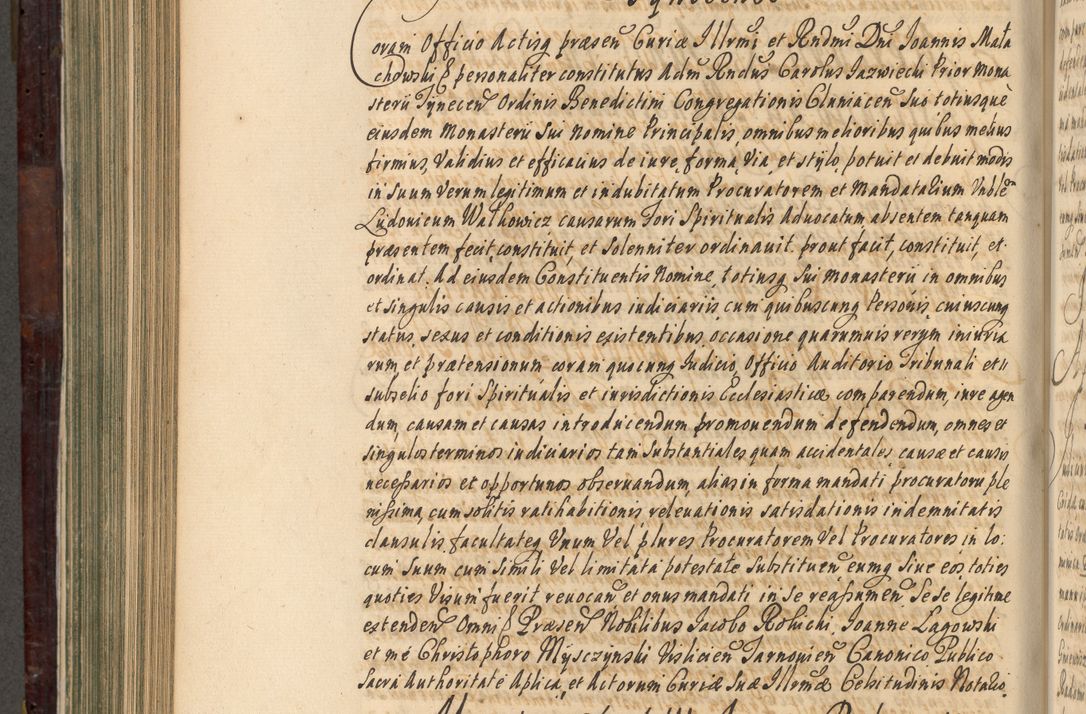 Coram Officio Actisq præsen̄ Curiæ Illrmi et Rndmi Dni Joannis Mała
chowski &c personaliter constitutus Adm Rndus Carolus Jazwiecki Prior Mona
sterii Tynecen̄ Ordinis Benedictini Congregationis Cluniacen̄ Suo totiusque
eiusdem Monasterii Sui Nomine Principalis, omnibus melioribus quibus melius
firmius, Validius et efficacius de iure, forma, Via, et stylo, potuit et debuit modis
in Suum Verum legitimum et indubitatum Procuratorem et Mandatarium Vnblem
Ludovicum Walkowicz causarum Fori Spiritualis Advocatum absentem tanquam
præsentem fecit, constituit, et Solenniter ordinauit. prout facit, constituit, et
ordinat. Ad eiusdem Constituentis Nomine, totiusq Sui Monasterii in omnibus
et singulis causis et actionibus iudiciariis cum quibuscunq Personis, cuiuscunq
status, sexus et conditionis existentibus, occasione quarumuis rerum iniuria
rum, et prætensionum coram quocunq Iudicio, Officio Auditorio Tribunali et
subselio fori Spiritualis et iurisdictionis Ecclesiasticæ comparendum, iure agen
dum, causam et causas introducendum promouendum defendendum, omnes et
singulos terminos iudiciarios tam Substantiales quam accidentales causæ et causis
necessarios et opportunos obseruandum, alias in forma mandati procuratorii ple
nissima, cum solitis ratihabitionis releuationis satisdationis indemnitatis
clausulis, facultateq Vnum Vel plures Procuratorem Vel Procuratores in lo:
cum Suum cum Simili Vel limitata potestate Substituen̄ eumq Siue eos, toties
quoties Visum fuerit reuocan̄ et onus mandati in Se reassumen̄. Sese legitime
extenden̄ Omni &c Præsen̄ Nobilibus Jacobo Rolicki, Joanne Łagowski
et me Christophoro Mysczynski Vislicien̄ Tarnovien̄ Canonico Publico
Sacra Authoritate Aplica, et Actorum Curiæ Suæ Illrmæ Celsitudinis Notario.